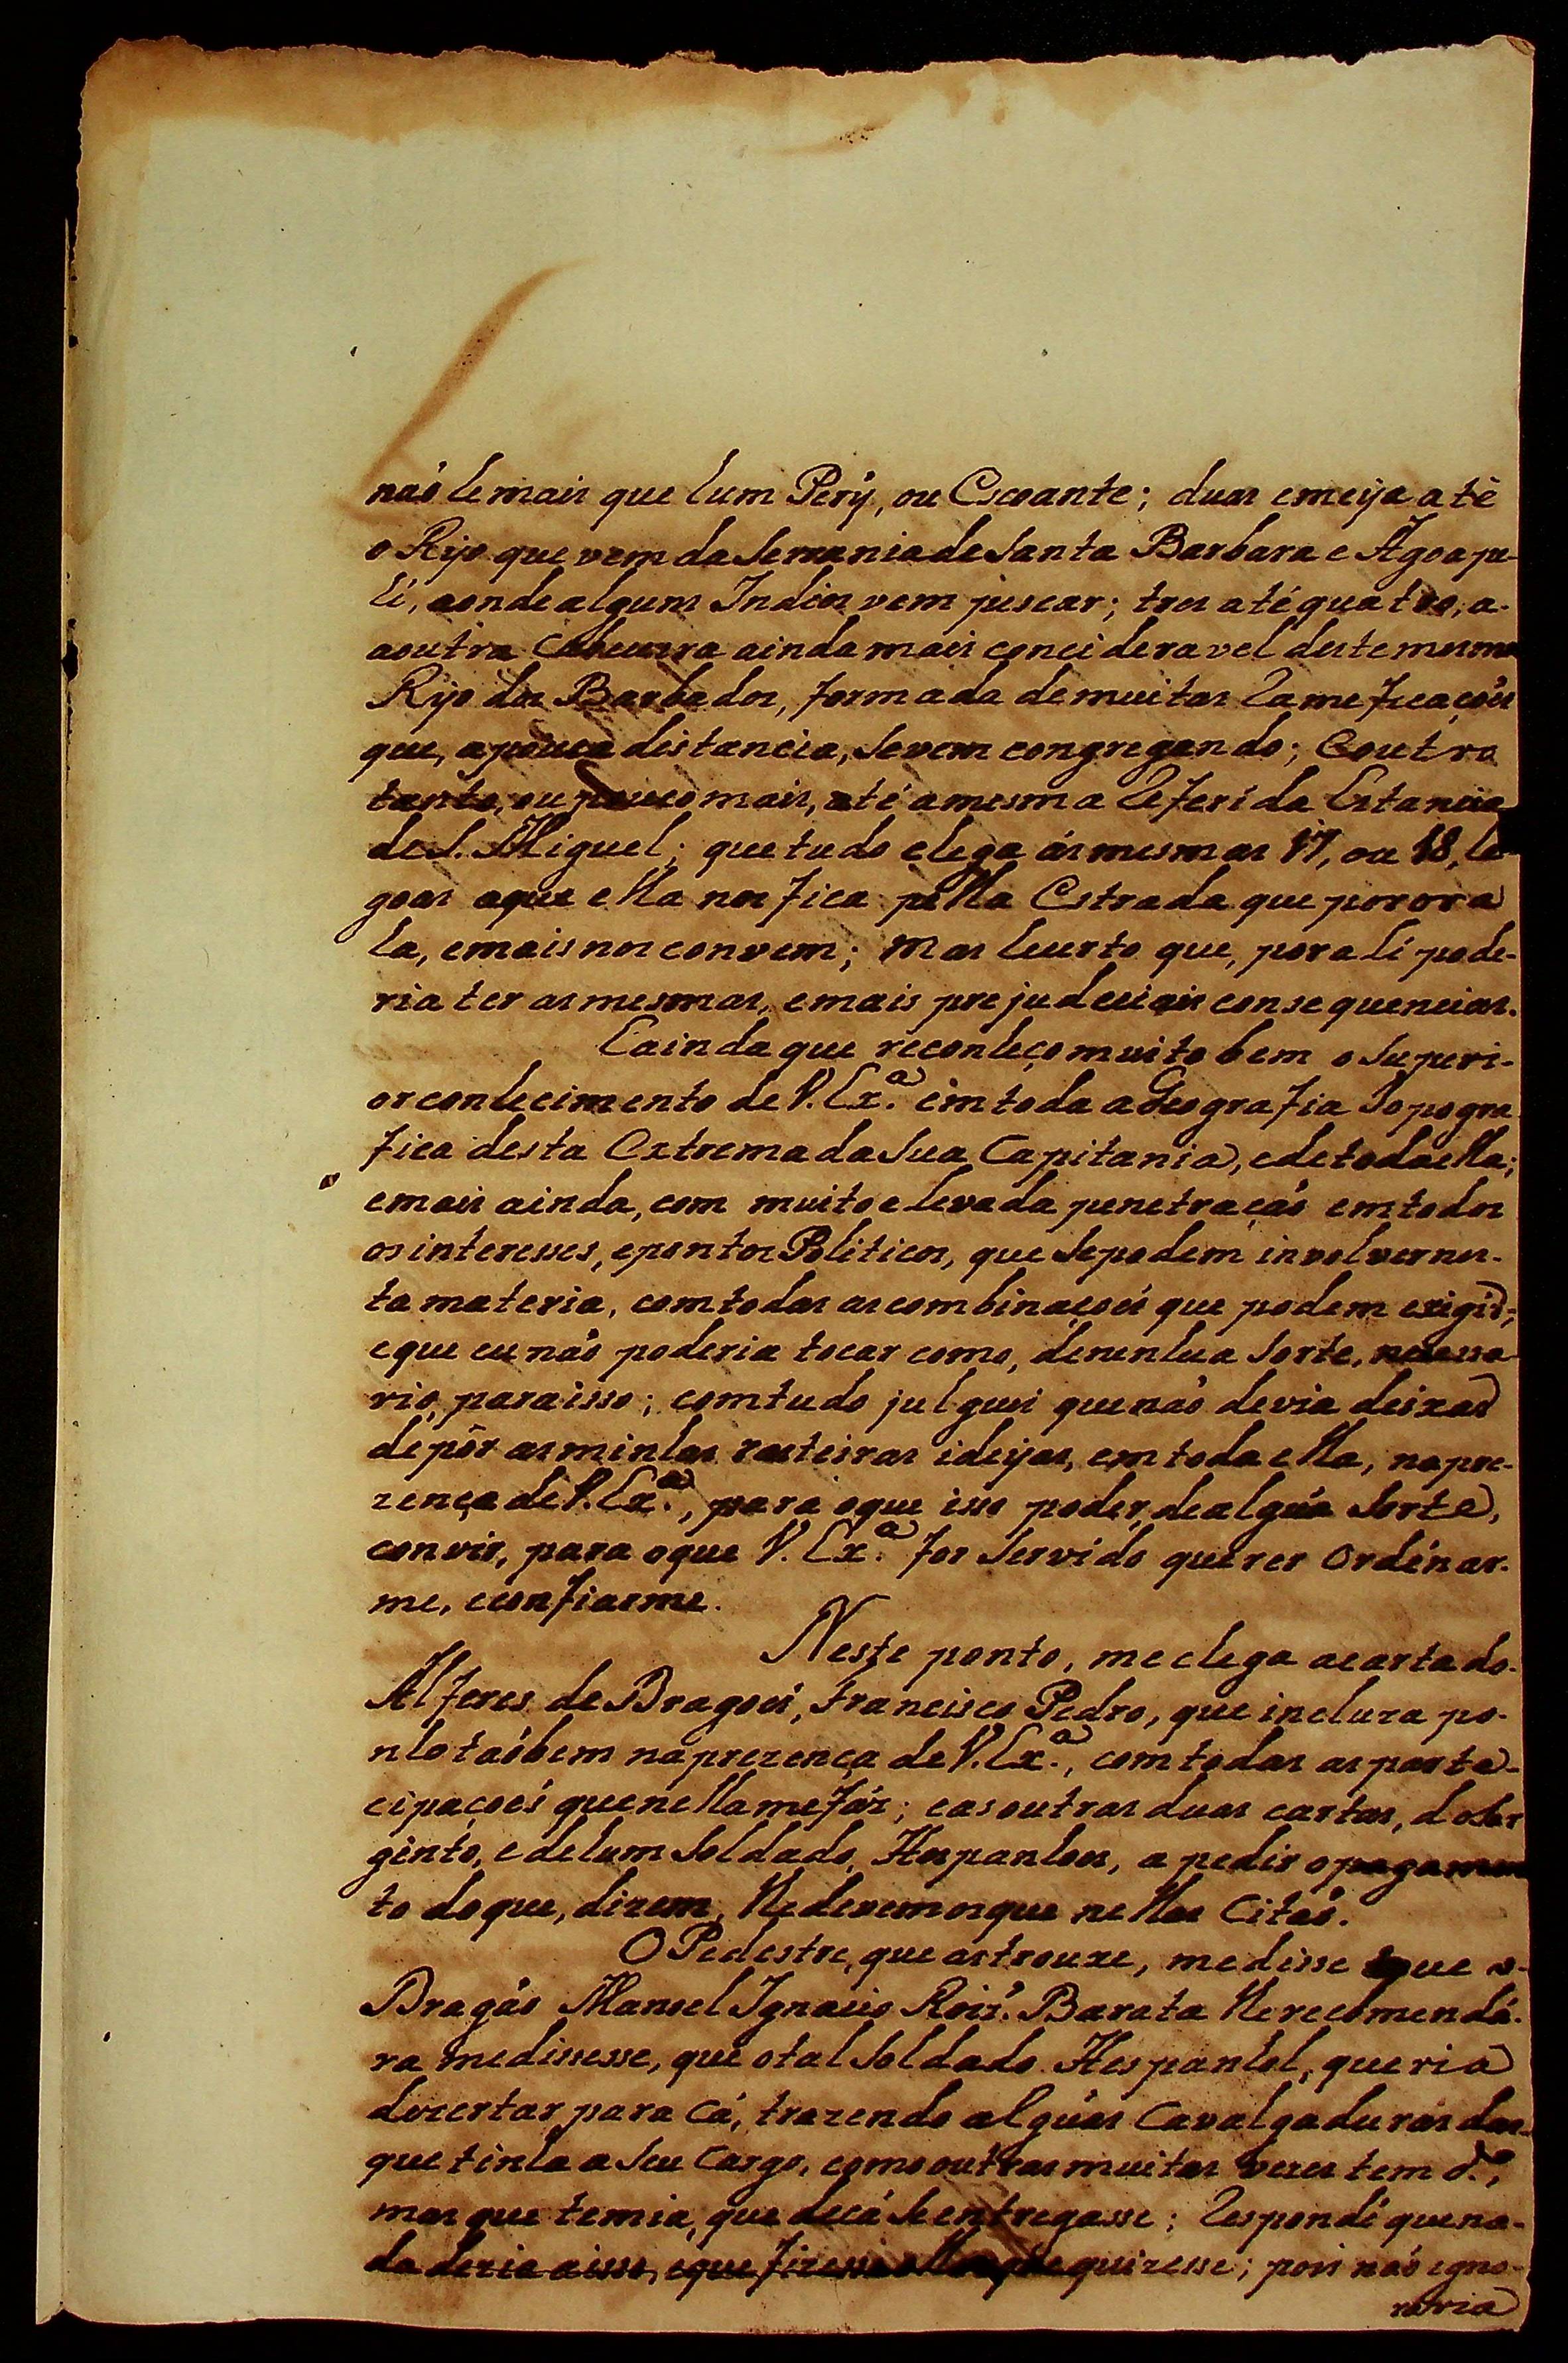 naõ he mais que hum Perý, ou Escoante; duas e meýa athé
o Rijo que vem da Serrania de Santa Barbara e Agoape-
hí, aonde alguns Indios vem pescar; tres até quatro, a-
a outra Cabeceira ainda mais concideravel deste mesmo
Rijo dos Barbados, formada de muitas Rameficaçoẽs
que, a pouca distancia, se vem congregando; e outro
tanto, ou pouco mais, até a mesma referida Estancia
de S. Miguel; que tudo chega ás mesmas 17, ou 18, le-
goas a que ella nos fica pella Estrada que por ora
ha, e mais nos convem; mas he certo que, por alí pode-
ria ter as mesmas, e mais prejudeciais consequencias.
E ainda que reconheço muito bem o Superi-
or conhecimento de V. Ex.ª em toda a Geografia Topogra-
fica desta Extrema da Sua Capitania, e de toda ella;
e mais ainda, com muito elevada penetraçaõ em todos
os interesses, e pontos Politicos, que se podem involver nes-
ta materia, com todas as combinaçoẽs que podem exigir;
e que eu naõ poderia tocar como, de nenhua Sorte, necessa-
rio, para isso; comtudo julguei que naõ devia deixar
de pôr as minhas rasteiras ideýas, em toda ella, na pre-
zença de V. Ex.ª, para o que isso poder, de algúa Sorte,
convir, para o que V. Ex.ª for Servido querer Ordenar-
me, e confiarme.
Neste ponto, me chega a carta do
Alferes de Dragoẽs, Francisco Pedro, que incluza po-
nho taõbem na prezença de V. Ex.ª, com todas as parte-
cipaçoẽs que nella me fáz; e as outras duas cartas, do Sar-
gento, e de hum Soldado, Hespanhoes, a pedir o pagamen-
to do que, dizem, lhe devemos que nellas Citaõ.
O Pedestre, que as trouxe, me disse que o
Dragaõ Manoel Ignacio Roiz. Barata lhe recomendá-
ra me dissesse, que o tal Soldado Hespanhol, queria
dezertar para Cá, trazendo algúas Cavalgaduras das
que tinha a Seu Cargo, como outras muitas vezes tem d.º,
mas que temia, que de cá Se entregasse; Respondí que na-
da dezia a isso, e que fizesse elle o que quizesse; pois naõ egno-
raria